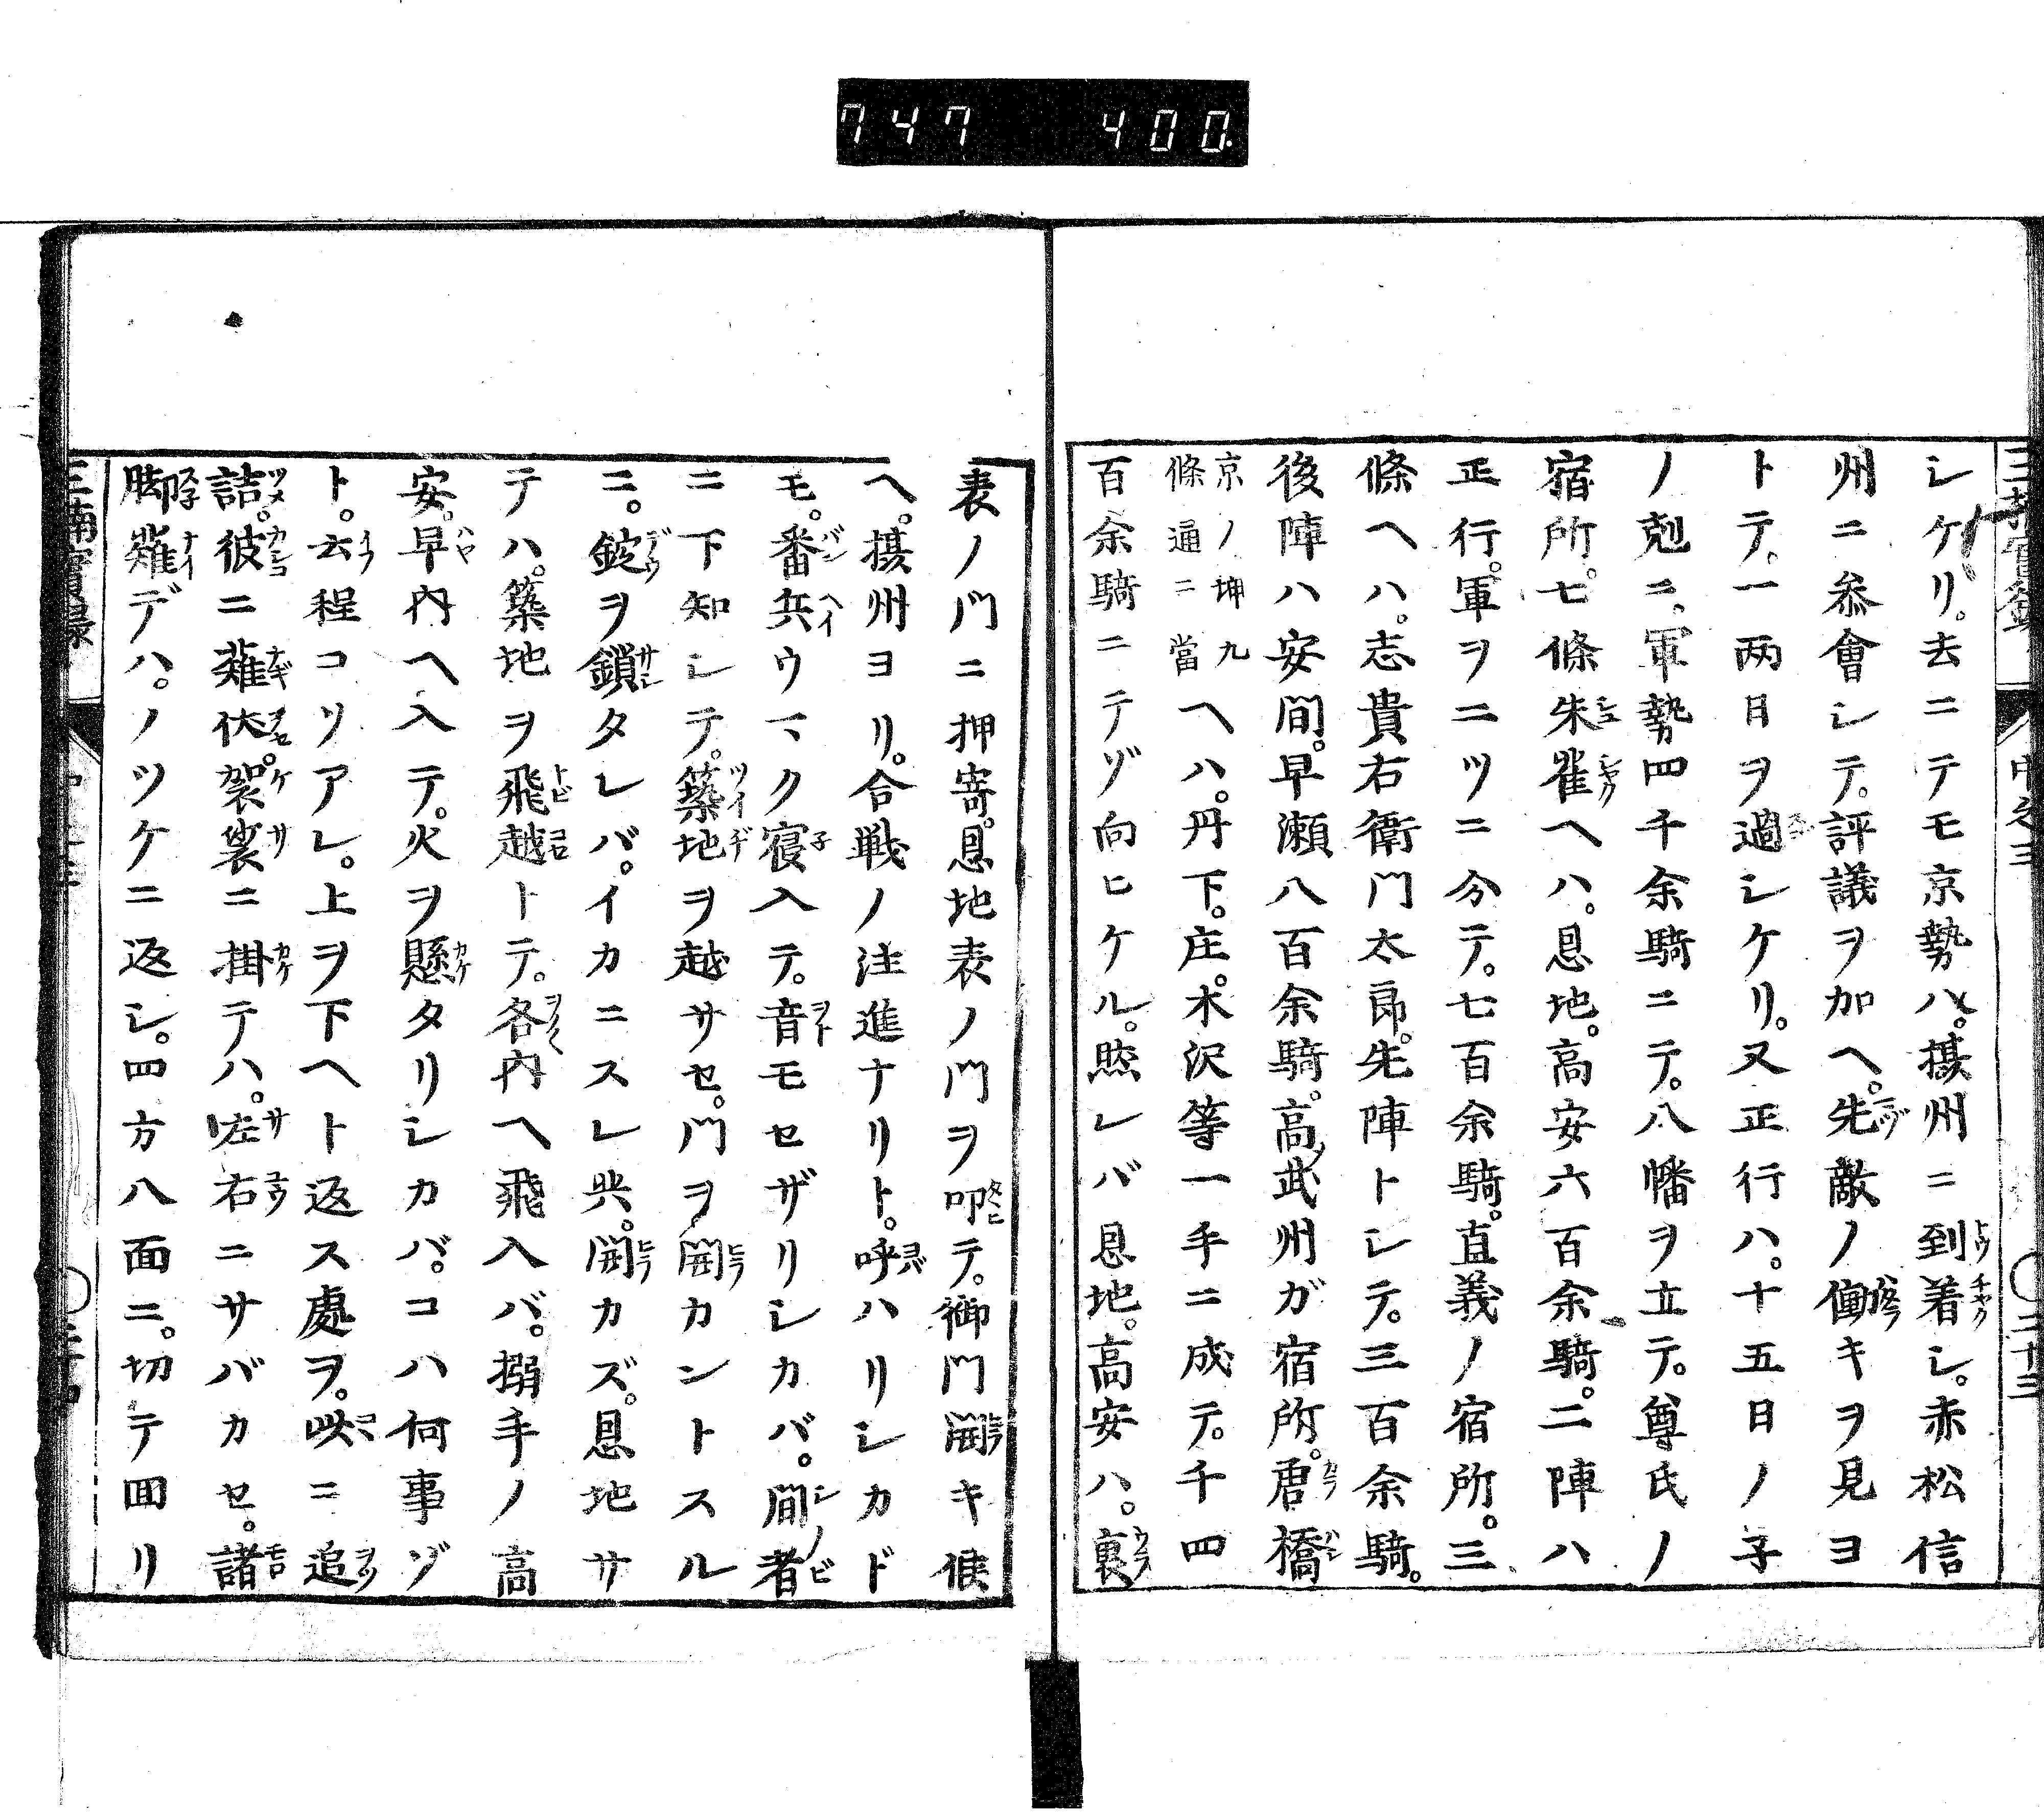 747 400.
シケリ。去ニテモ京勢ハ。摂州ニ到着シ。赤松信
州ニ參會シテ。評議ヲ加ヘ。先敵ノ働キヲ見ヨ
トテ。一両日ヲ過シケリ。又正行ハ。十五日ノ子
ノ剋ニ、軍勢四千余騎ニテ。八幡ヲ立テ。尊氏ノ
宿所。七條朱雀ヘハ。恩地。高安六百余騎。二陣ハ
正行。軍ヲニツニ分テ。七百余騎。直義ノ宿所。三
條ヘハ。志貴右衛門太郎。先陣トシテ。三百余騎。
後陣ハ安間。早瀬八百余騎。高武州ガ宿所。唐橋
京ノ坤九
條通ニ當
ヘハ。丹下。庄。木沢等一手ニ成テ。千四
百余騎ニテゾ向ヒケル。然レバ恩地。高安ハ。裏
表ノ門ニ押寄。恩地表ノ門ヲ叩テ。御門開キ候
ヘ。摂州ヨリ。合戦ノ注進ナリト。呼ハリシカド
モ。番兵ウマク寝入テ。音モセザリシカバ。間者
ニ下知シテ。築地ヲ越サセ。門ヲ開カントスル
ニ。錠ヲ鎖タレバ。イカニスレ共。開カズ。恩地サ
テハ。築地ヲ飛越トテ。各内ヘ飛入バ。搦手ノ高
安。早内ヘ入テ。火ヲ懸タリシカバ。コハ何事ゾ
ト。云程コソアレ。上ヲ下ヘト返ス處ヲ。此ニ追
詰。彼ニ薙伏。袈裟ニ掛テハ。左右ニサバカセ。諸
脚薙デハ。ノツケニ返シ。四方八面ニ。切テ回リ